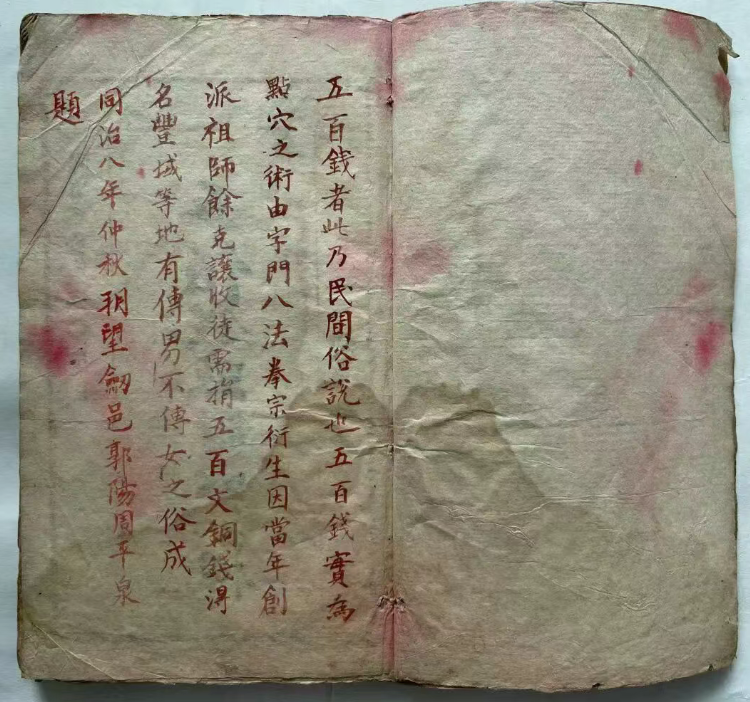 五百錢者此乃民間俗説也五百錢實為
點穴之術由字門八法拳宗衍生因當年創
派祖師餘克讓收徒需捐五百文銅錢得
名豐城等地有傳男不傳女之俗成
同治八年仲秋玥望劒邑郭陽周平泉
題